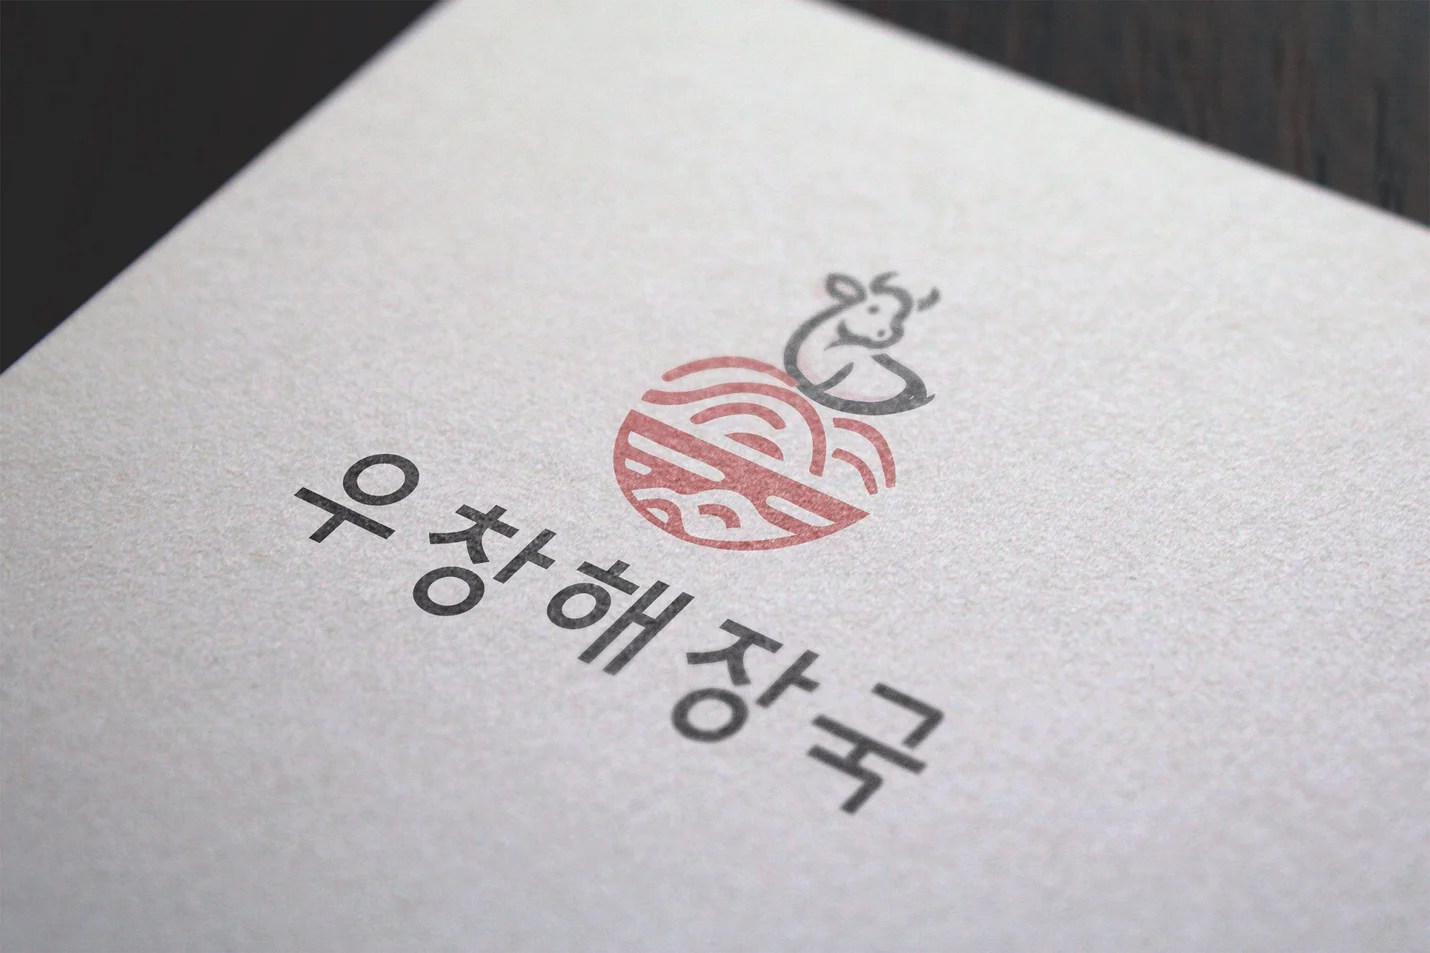 우창해장국